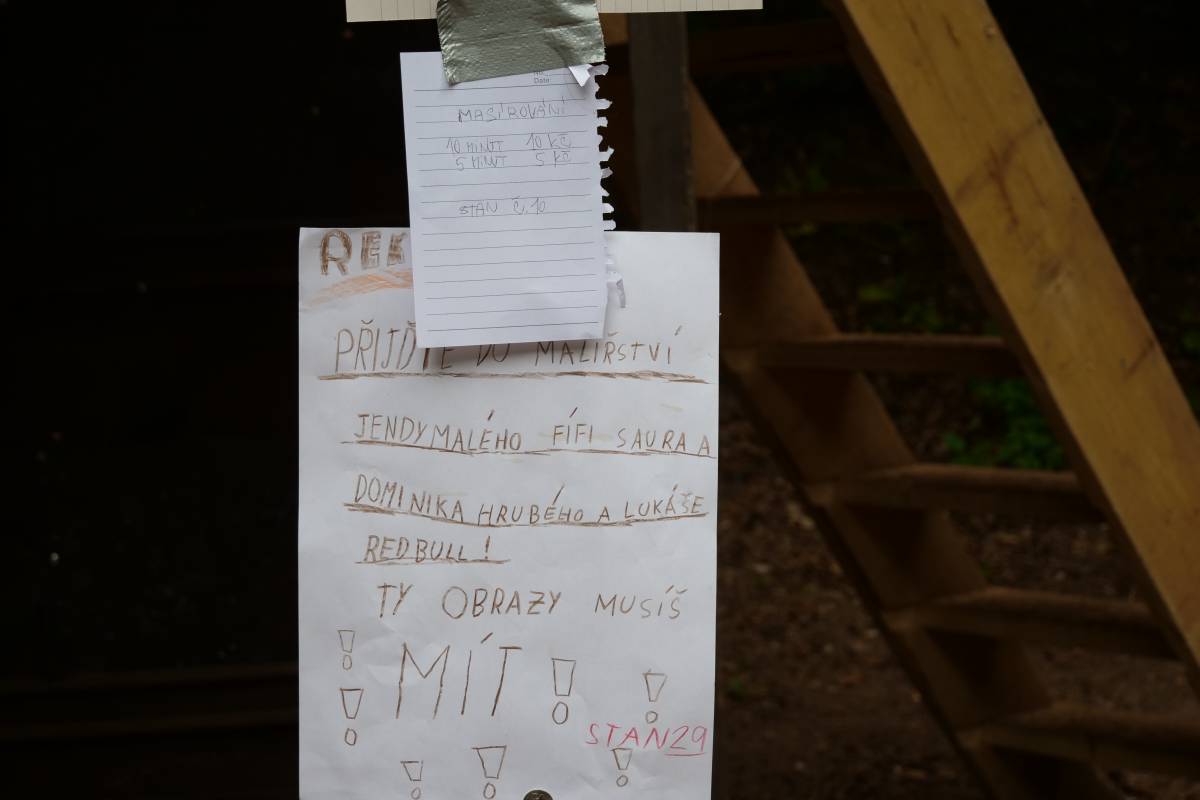 No.
Date
MASÍROVÁNÍ
10 MINUT 10 KČ
5 MINUT 5 KČ
STAN Č. 10
REK
PŘIJĎTE DO MALÍŘSTVÍ
JENDY MALÉHO FÍFI SAURA A
DOMINIKA HRUBÉHO A LUKÁŠE
REDBULL!
TY OBRAZY MUSÍŠ
MÍT !
STAN 29